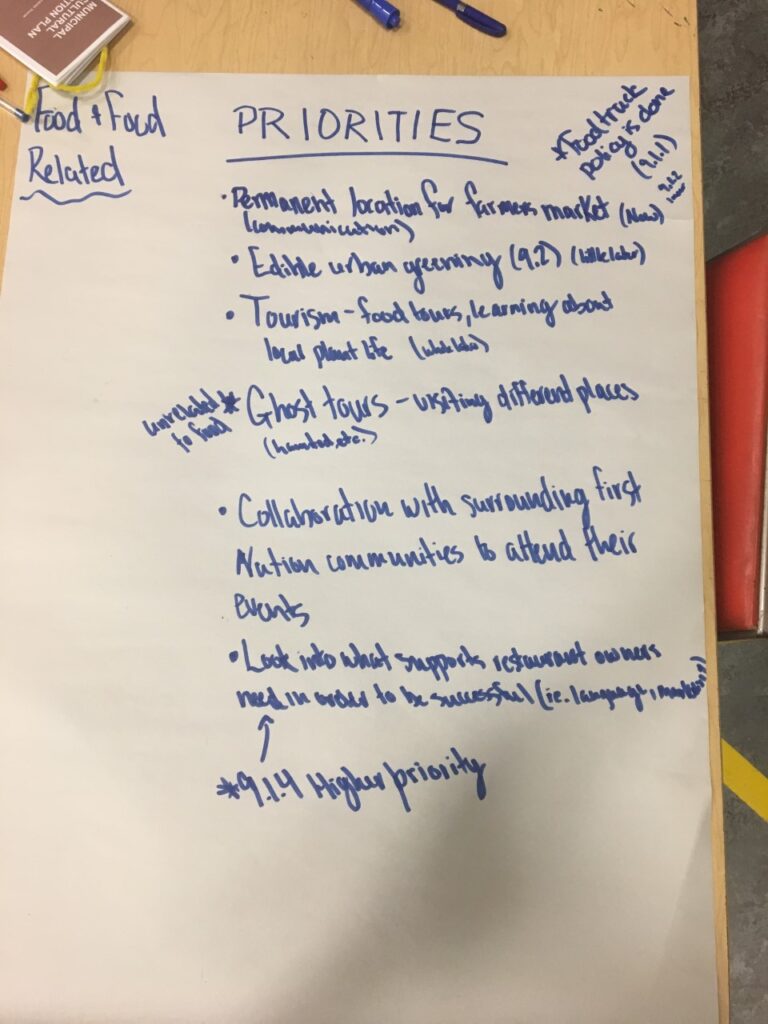 MUNICIPAL
CULTURAL
ACTION PLAN
Food + Food
Related
PRIORITIES
*Food truck
policy is done
(9.1.1)
• Permanent location for farmers market (Now)
(communication)
• Edible urban greening (9.2) (little later)
• Tourism - food tours, learning about
local plant life
unrelated
to food
* Ghost tours - visiting different places
(haunted, etc.)
• Collaboration with surrounding first
Nation communities to attend their
events
• Look into what supports restaurant owners
need in order to be sucessful (ie. language, marketing)
*9.1.4 Higher priority